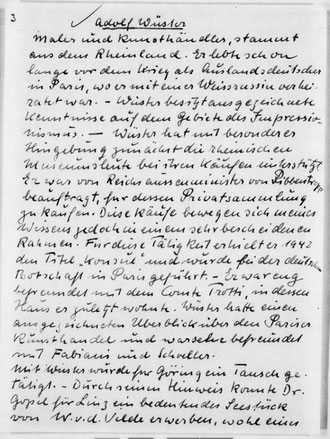 3
Adolf Wüster
Maler und Kunsthändler, stammt
aus dem Rheinland. Er lebte schon
lange vor dem Krieg als Auslandsdeutscher
in Paris, wo er mit einer Weissrussin verhei-
ratet war. – Wüster besitzt ausgezeichnete
Kenntnisse auf dem Gebiete des Impressio-
nismus. – Wüster hat mit besonderer
Hingebung zunächst die rheinischen
Museumsleute bei ihren Käufen unterstützt.
Er war von Reichsaussenminister von Ribbentrop
beauftragt, für dessen Privatsammlung
zu kaufen. Diese Käufe bewegen sich meines
Wissens jedoch in einem sehr bescheidenen
Rahmen. Für diese Tätigkeit erhielt er 1942
den Titel "Konsul" und wurde bei der deutschen
Botschaft in Paris geführt. – Er war eng
befreundet mit dem Comte Trotti, in dessen
Haus er zuletzt wohnte. Wüster hatte einen
ausgezeichneten Überblick über den Pariser
Kunsthandel und war sehr befreundet
mit Fabiani und Schoeller.
Mit Wüster wurde für Göring ein Tausch ge-
tätigt. – Durch seinen Hinweis konnte Dr.
Göpel für Linz ein bedeutendes Seestück
von W. v. d. Velde erwerben, wohl eines